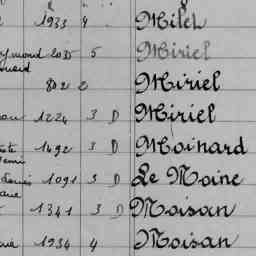 1933 4 Milch
2025 5 Miriel
802 2 Miriel
1224 3 D Miriel
1492 3 D Moinard
1091 3 D Le Moine
1341 3 D Moisan
1934 4 Moisan